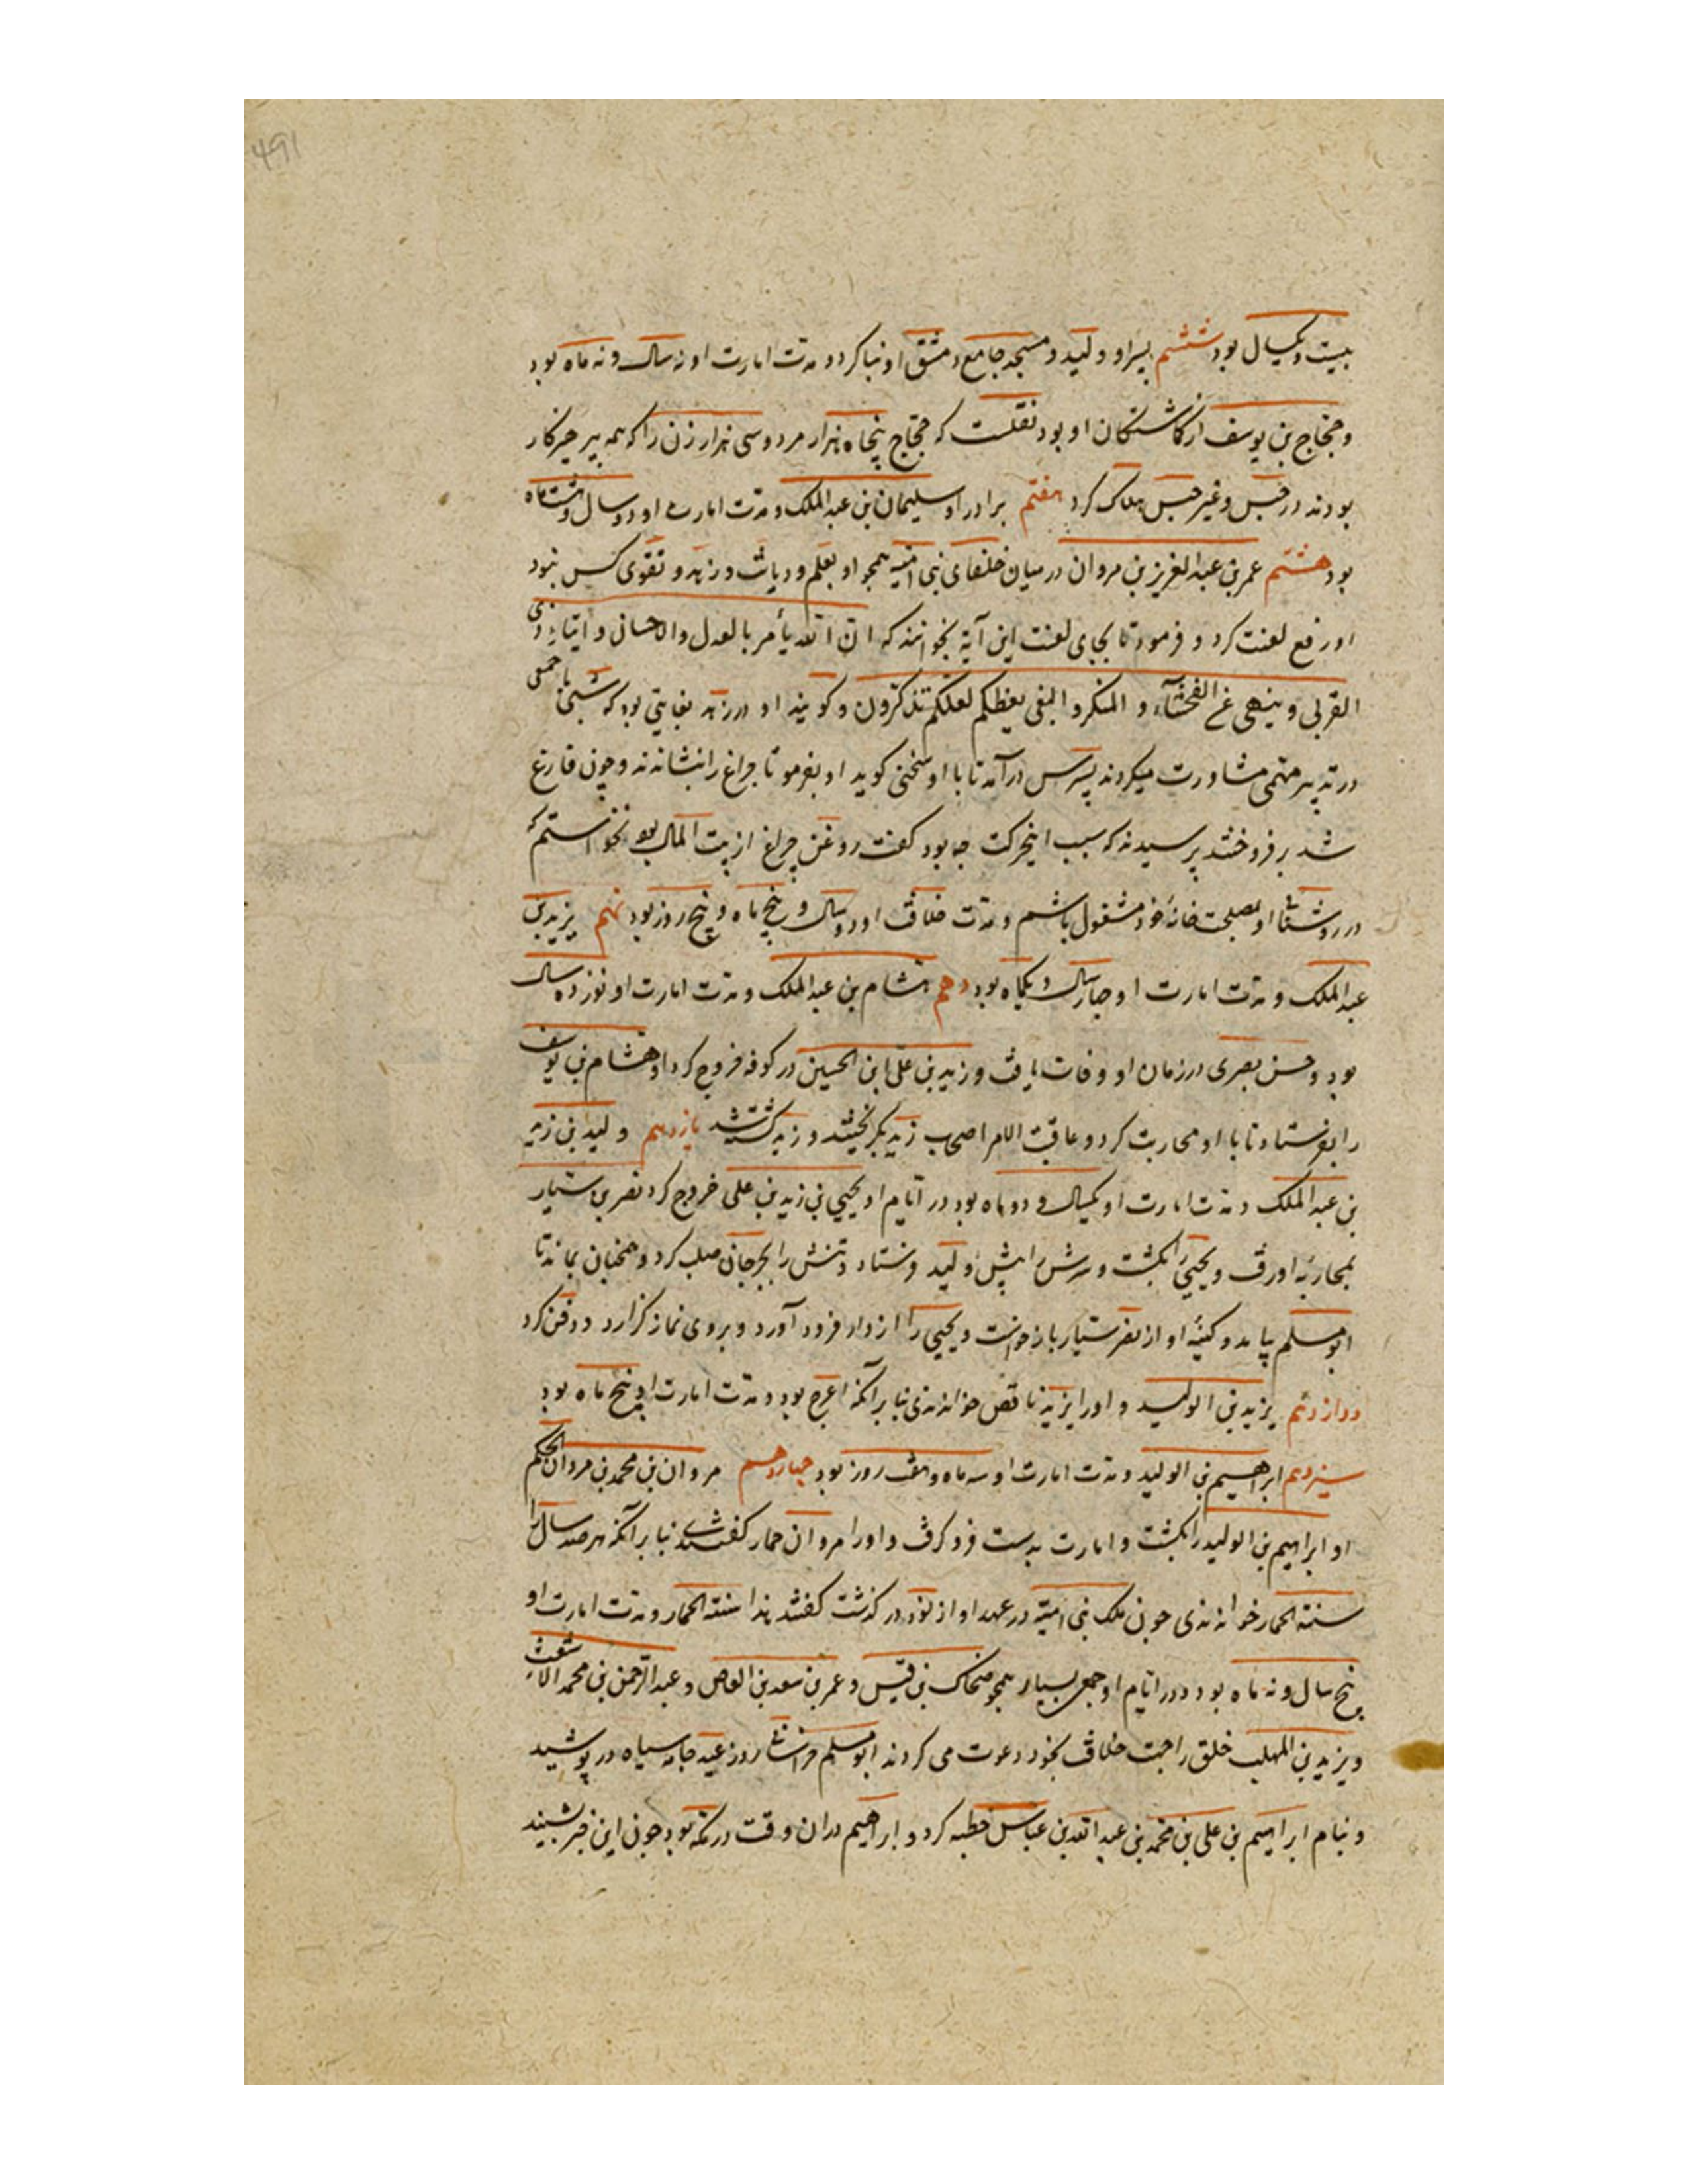 ۴۹۱
بیست و یکسال بود ششم پسر او ولید و مسجد جامع دمشق او بنا کرد و مدت امارت او نه سال و نه ماه بود
و حجاج بن یوسف از کماشتکان او بود نقلست که حجاج پنجاه هزار مرد و سی هزار زن را که همه پرهیزکار
بودند در حبس و غیر حبس هلاک کرد هفتم برادر او سلیمان بن عبدالملک و مدت امارت او دو سال و هشت ماه
بود هشتم عمر بن عبدالعزیز بن مروان در میان خلفای بنی امیه همچو او بعلم و دیانت و زهد و تقوی کس نبود
او رفع لعنت کرد و فرمود تا بجای لعنت این آیة بخوانند که ان الله یأمر بالعدل والاحسان و ایتاء ذی
القربی و ینهی عن الفحشآء و المنکر و البغی یعظکم لعلکم تذکرون و کویند او در زهد بغایتی بود که شبی با جمعی
در تدبیر مهمی مشاورت میکردند پسرش درآمد تا با او سخنی کوید او بفرمود تا چراغ را بنشاندند و چون فارغ
شد بر فروختند پرسیدند که سبب اینحرکت چه بود کفت روغن چراغ از بیت المال بود نخواستم که
در روشنائی او بمصلحت خانهٔ خود مشغول باشم و مدت خلافت او دو سال و پنج ماه و پنج روز بود نهم یزید بن
عبدالملک و مدت امارت او چهار سال و یکماه بود دهم هشام بن عبدالملک و مدت امارت او نوزده سال
بود و حسن بصری در زمان او وفات یافت و زید بن علی ابن الحسین در کوفه خروج کرد او هشام بن یوسف
را بفرستاد تا با او محاربت کرد و عاقبت الامر اصحاب زید بگریختند و زید کشته شد یازدهم ولید بن زید
بن عبدالملک و مدت امارت او یکسال و دو ماه بود در ایام او یحیی بن زید بن علی خروج کرد نصر بن ستیار
بمحاربهٔ او رفت و یحیی را بکشت و سرش را پیش ولید فرستاد و تنش را بجرجان صلب کرد و همچنان بماند تا
ابو مسلم بیامد و کینهٔ او از نصر ستیار باز خواست و یحیی را از دار فرود آورد و بر وی نماز کزارد و دفن کرد
دوازدهم یزید بن الولید و او را یزید ناقص خواندندی بنا بر آنکه اعرج بود و مدت امارت او پنج ماه بود
سیزدهم ابراهیم بن الولید و مدت امارت او سه ماه و هفت روز بود چهاردهم مروان بن محمد بن مروان الحکم
او ابراهیم بن الولید را بکشت و امارت بدست فرو کرفت و او را مروان حمار کفتندی بنا بر آنکه هر صد سال را
سنة الحمار خواندندی چون ملک بنی امیه در عهد او از نود در کذشت کفتند هذا سنة الحمار و مدت امارت او
پنج سال و نه ماه بود و در ایام او جمعی بسیار همچو ضحاک بن قیس و عمر بن سعد بن العاص و عبدالرحمن بن محمد الاشعث
و یزید بن المهلب خلق را جهت خلافت بخود دعوت می کردند ابو مسلم خراسانی روز عید جامه سیاه در پوشید
و بنام ابراهیم بن علی بن محمد بن عبد الله بن عباس خطبه کرد و ابراهیم در ان وقت در مکه بود چون این خبر بشنید